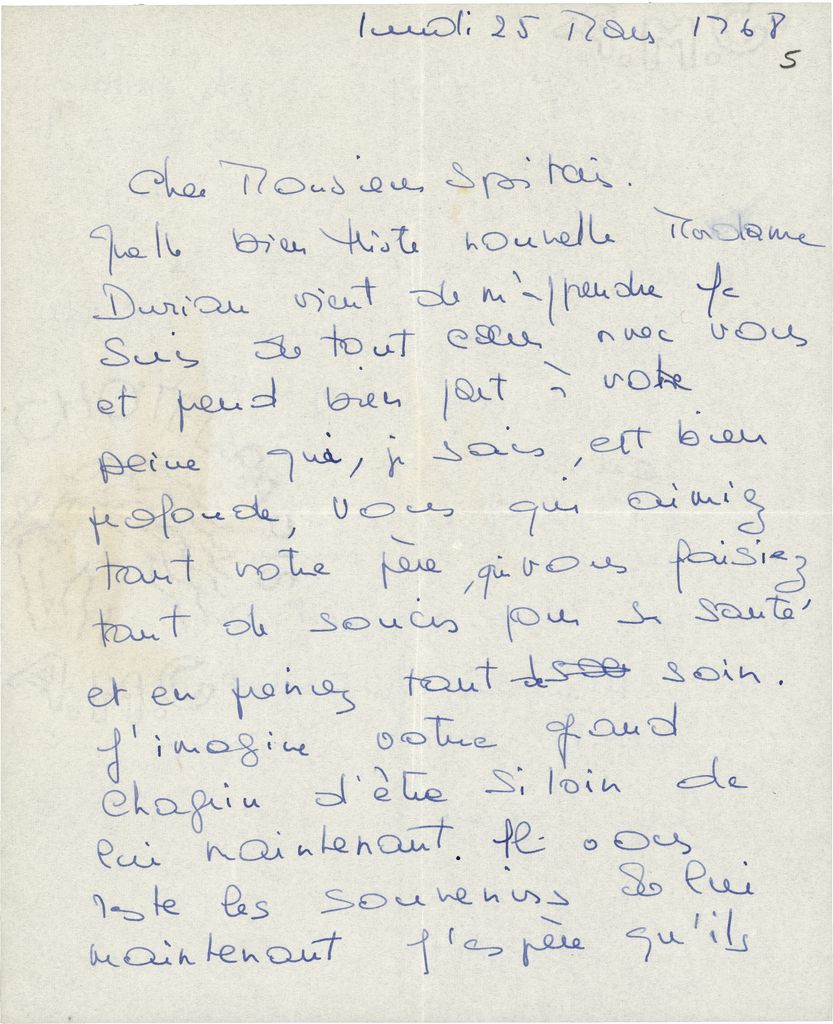 lundi 25 Mars 1968
5
Cher Monsieur Spitais.
Quelle bien triste nouvelle Madame
Durian vient de m'apprendre Je
suis de tout cœur avec vous
et prend bien part à votre
peine qui, je sais, est bien
profonde, vous qui aimiez
tant votre père, qui vous faisiez
tant de soucis pour sa santé
et en preniez tant soin.
J'imagine votre grand
chagrin d'être si loin de
lui maintenant. Il vous
reste les souvenirs de lui
maintenant J'espère qu'ils